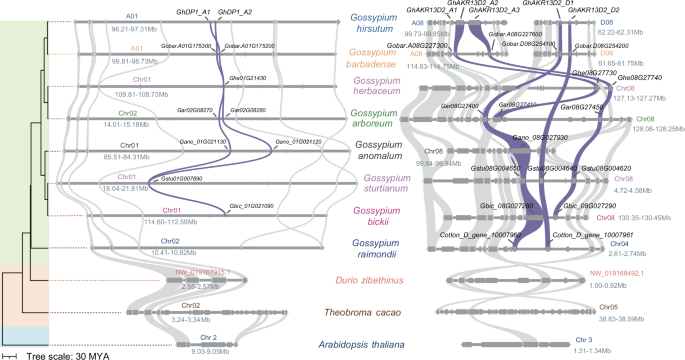 GhDP1_A2
GhDP1_A1
A01
96.21-97.31Mb
Gossypium
hirsutum
A01
99.81-98.73Mb
Gobar.A01G175300
Gobar.A01G175200
Gossypium
barbadense
Chr01
109.81-108.73Mb
Ghe01G21430
Gossypium
herbaceum
Chr02
14.01-15.18Mb
Gar02G08270
Gar02G08280
Gossypium
arboreum
Chr01
85.51-84.31Mb
Gano_01G021130
Gano_01G021120
Gossypium
anomalum
Chr01
18.04-21.81Mb
Gstu01G007690
Gossypium
sturtianum
Chr01
114.60-112.59Mb
Gbic_01G021090
Gossypium
bickii
Chr02
10.41-10.82Mb
Gossypium
raimondii
NW_019167915.1
2.55-2.57Mb
Durio zibethinus
Chr02
3.24-3.34Mb
Theobroma cacao
Chr 2
9.03-9.05Mb
Arabidopsis thaliana
Tree scale: 30 MYA
GhAKR13D2_A1
GhAKR13D2_A2
GhAKR13D2_A3
GhAKR13D2_D1
GhAKR13D2_D2
A08
99.73-99.85Mb
D08
62.22-62.31Mb
Gobar.A08G227300
Gobar.A08G227600
Gobar.D08G254100
Gobar.D08G254200
A08
114.63-114.75Mb
D08
61.65-61.75Mb
Ghe08G27730
Ghe08G27740
Chr08
127.13-127.27Mb
Gar08G27400
Gar08G27410
Gar08G27450
Chr08
128.08-128.25Mb
Gano_08G027930
Chr08
99.84-99.94Mb
Gstu08G004650
Gstu08G004640
Gstu08G004620
Chr08
4.72-4.58Mb
Gbic_08G027280
Gbic_08G027290
Chr08 130.35-130.45Mb
Cotton_D_gene_10007960
Cotton_D_gene_10007961
Chr04
2.61-2.74Mb
NW_019168492.1
1.00-0.92Mb
Chr05
38.83-38.59Mb
Chr 3
1.31-1.34Mb